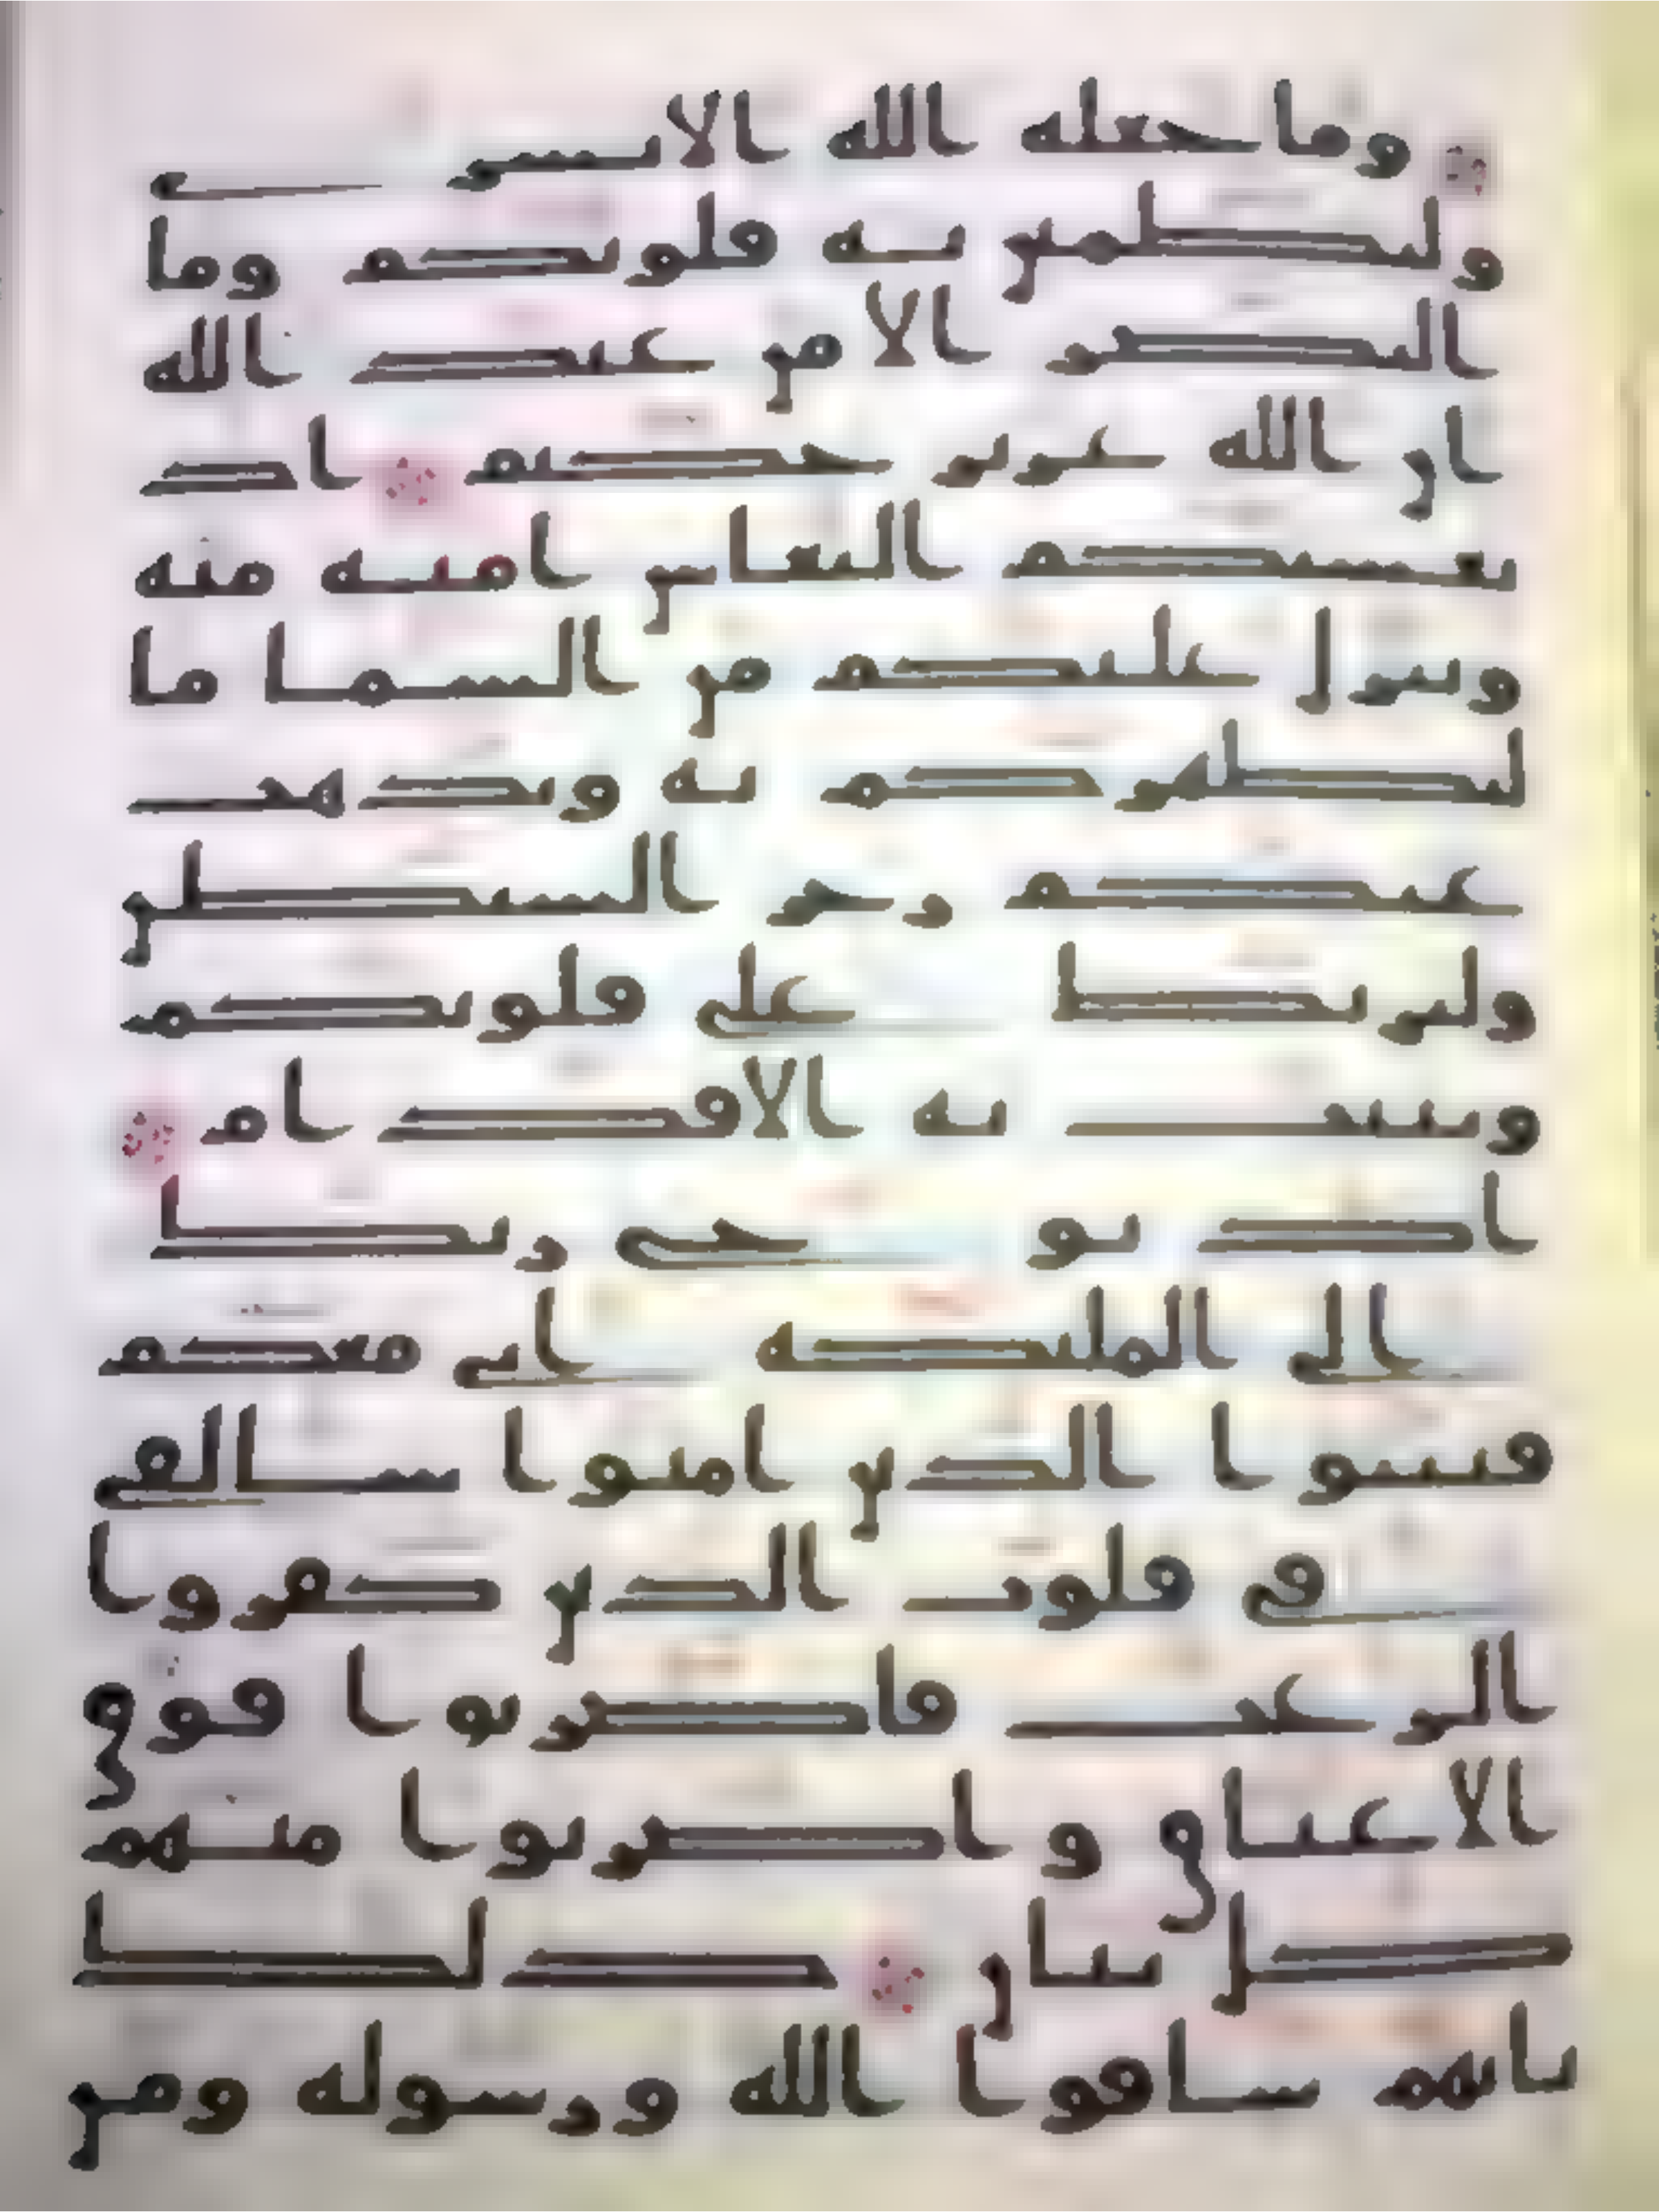 وما جعله الله الا بشرى
ولتطمئن به قلوبكم وما
النصر الا من عند الله
ان الله عزيز حكيم اذ
يغشيكم النعاس امنة منه
وينزل عليكم من السما ما
ليطهركم به ويذهب
عنكم رجز الشيطن
وليربط على قلوبكم
ويثبت به الاقدام
اذ يوحي ربك
الى الملئكة اني معكم
فثبتوا الذين امنوا سالقي
في قلوب الذين كفروا
الرعب فاضربوا فوق
الاعناق واضربوا منهم
كل بنان ذلك
بانهم شاقوا الله ورسوله ومن